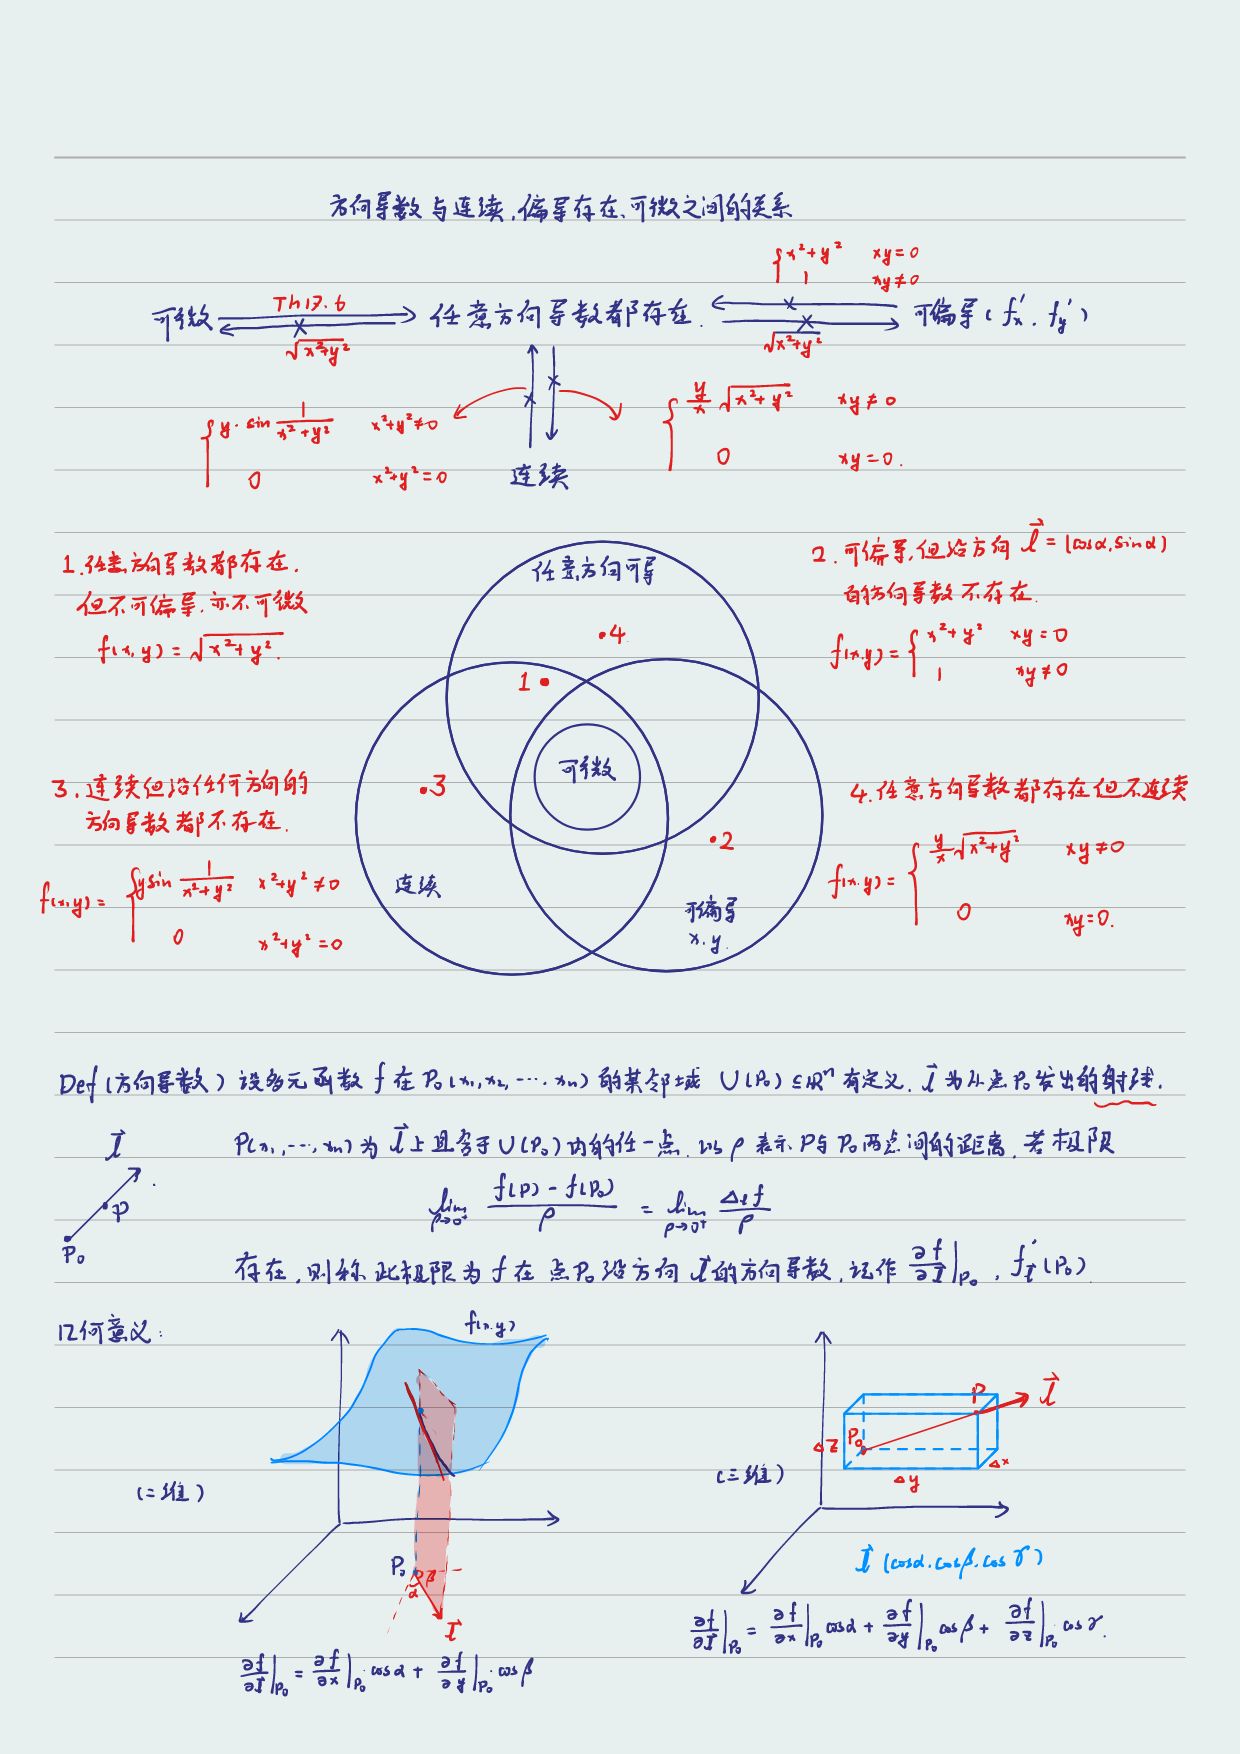 方向导数与连续、偏导存在、可微之间的关系
{ x²+y² xy=0
1 xy≠0
可微 Th17.6 任意方向导数都存在. 可偏导(fx′, fy′)
√(x²+y²) √(x²+y²)
{ y·sin 1/(x²+y²) x²+y²≠0
0 x²+y²=0
{ y/x √(x²+y²) xy≠0
0 xy=0.
连续
1.任意方向导数都存在,
但不可偏导,亦不可微
f(x,y)=√(x²+y²).
2.可偏导,但沿方向 l⃗=(cosα,sinα)
的方向导数不存在.
f(x,y)={ x²+y² xy=0
1 xy≠0
任意方向可导
·4
1·
可微
·3
·2
连续
可偏导
x.y.
3.连续但沿任何方向的
方向导数都不存在.
f(x,y)={ ysin 1/(x²+y²) x²+y²≠0
0 x²+y²=0
4.任意方向导数都存在但不连续
f(x,y)={ y/x √(x²+y²) xy≠0
0 xy=0.
Def(方向导数) 设多元函数 f 在 P₀(x₁,x₂,…,xn) 的某邻域 U(P₀)⊆ℝⁿ 有定义. l⃗ 为从点P₀发出的射线.
l⃗
P
P₀
P(x₁,…,xn) 为 l⃗ 上且含于U(P₀)内的任一点,以ρ表示P与P₀两点间的距离,若极限
lim ρ→0⁺ (f(P)-f(P₀))/ρ = lim ρ→0⁺ Δₗf/ρ
存在,则称此极限为 f 在点P₀沿方向 l⃗ 的方向导数,记作 ∂f/∂l⃗|P₀, f′l⃗(P₀)
几何意义:
f(x,y)
(二维)
P₀
α β
l⃗
∂f/∂l⃗|P₀ = ∂f/∂x|P₀·cosα + ∂f/∂y|P₀·cosβ
(三维)
P l⃗
P₀
Δz
Δy
Δx
l⃗ (cosα,cosβ,cosγ)
∂f/∂l⃗|P₀ = ∂f/∂x|P₀ cosα + ∂f/∂y|P₀ cosβ + ∂f/∂z|P₀ cosγ.